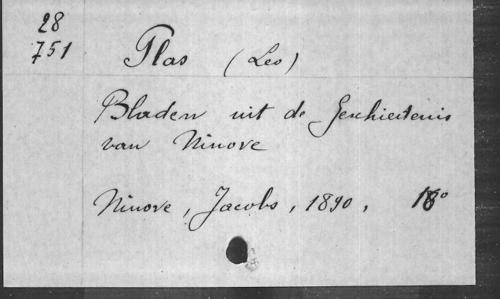 28
751
Plas (Leo)
Bladen uit de Geschiedenis
van Ninove
Ninove, Jacobs, 1890, 18°